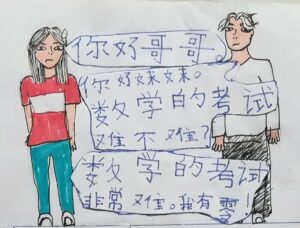 你好哥哥
你好妹妹。
数学的考试
难不难？
数学的考试
非常难。我有零！